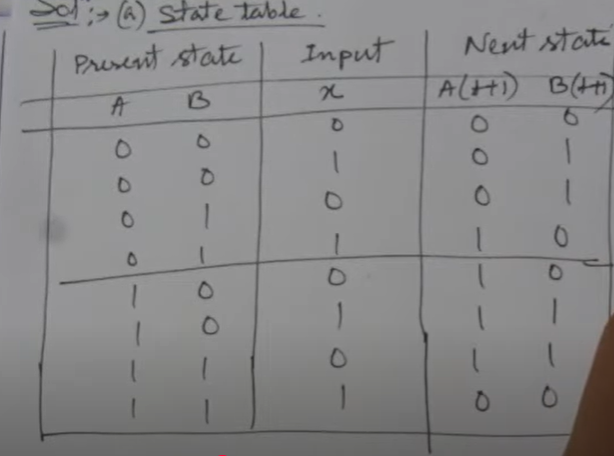 Sol :→ (a) State table.
Present state Input Next state
A B x A(t+1) B(t+1)
0 0 0 0 0
0 0 1 0 1
0 1 0 0 1
0 1 1 1 0
1 0 0 1 0
1 0 1 1 1
1 1 0 1 1
1 1 1 0 0